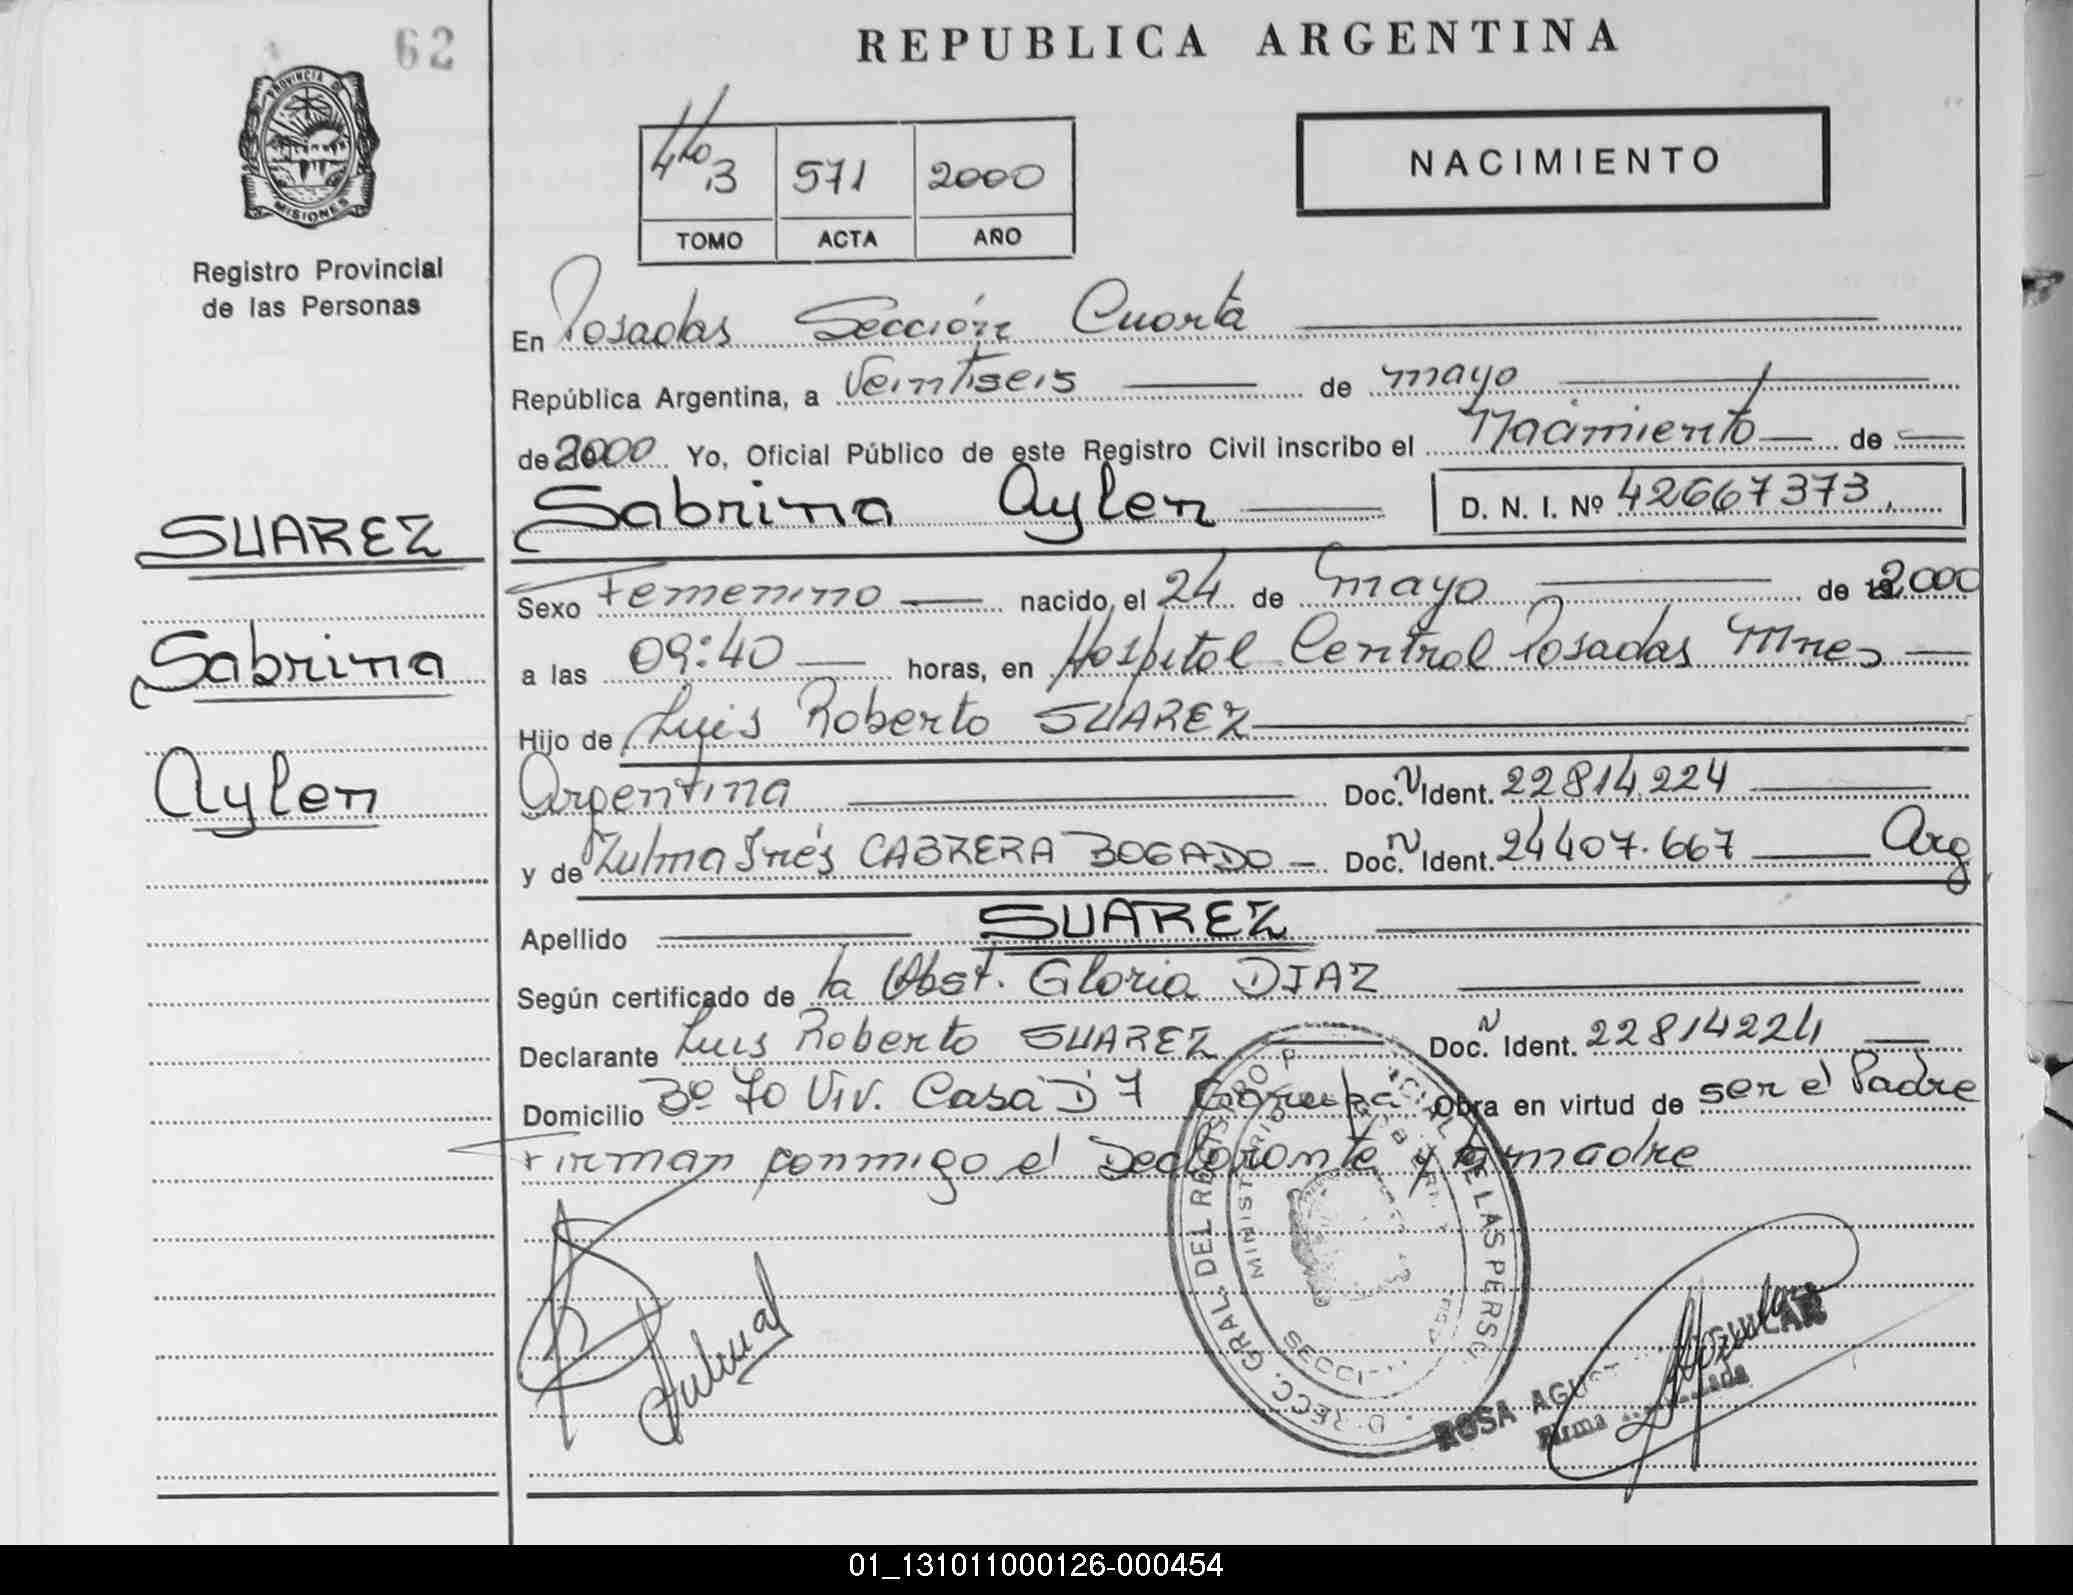 62
REPUBLICA ARGENTINA
PROVINCIA DE
MISIONES
Registro Provincial
de las Personas
4to 3 571 2000
TOMO ACTA AÑO
NACIMIENTO
En Posadas Sección Cuarta
República Argentina, a Veintiseis de mayo
de 2000 Yo, Oficial Público de este Registro Civil inscribo el Nacimiento de
Sabrina Aylen D. N. I. Nº 42667373
SUAREZ
Sabrina
Aylen
Sexo Femenino nacido el 24 de mayo de 2000
a las 09:40 horas, en Hospital Central Posadas Mnes
Hijo de Luis Roberto SUAREZ
Argentina Doc. N Ident. 22814.224
y de Zulma Inés CABRERA BOGADO Doc. N Ident. 24407.667 Arg
Apellido SUAREZ
Según certificado de la Obst. Gloria DIAZ
Declarante Luis Roberto SUAREZ Doc. N Ident. 22814224
Domicilio Bº 70 Viv. Casa D 7 Garupá Obra en virtud de ser el Padre
Firman conmigo el Declarante y la madre
D RECC. GRAL. DEL REGISTRO P CIAL DE LAS PERSO
MINISTERIO
SECCI
ROSA AGUS AGUILAR
Firma
01_131011000126-000454